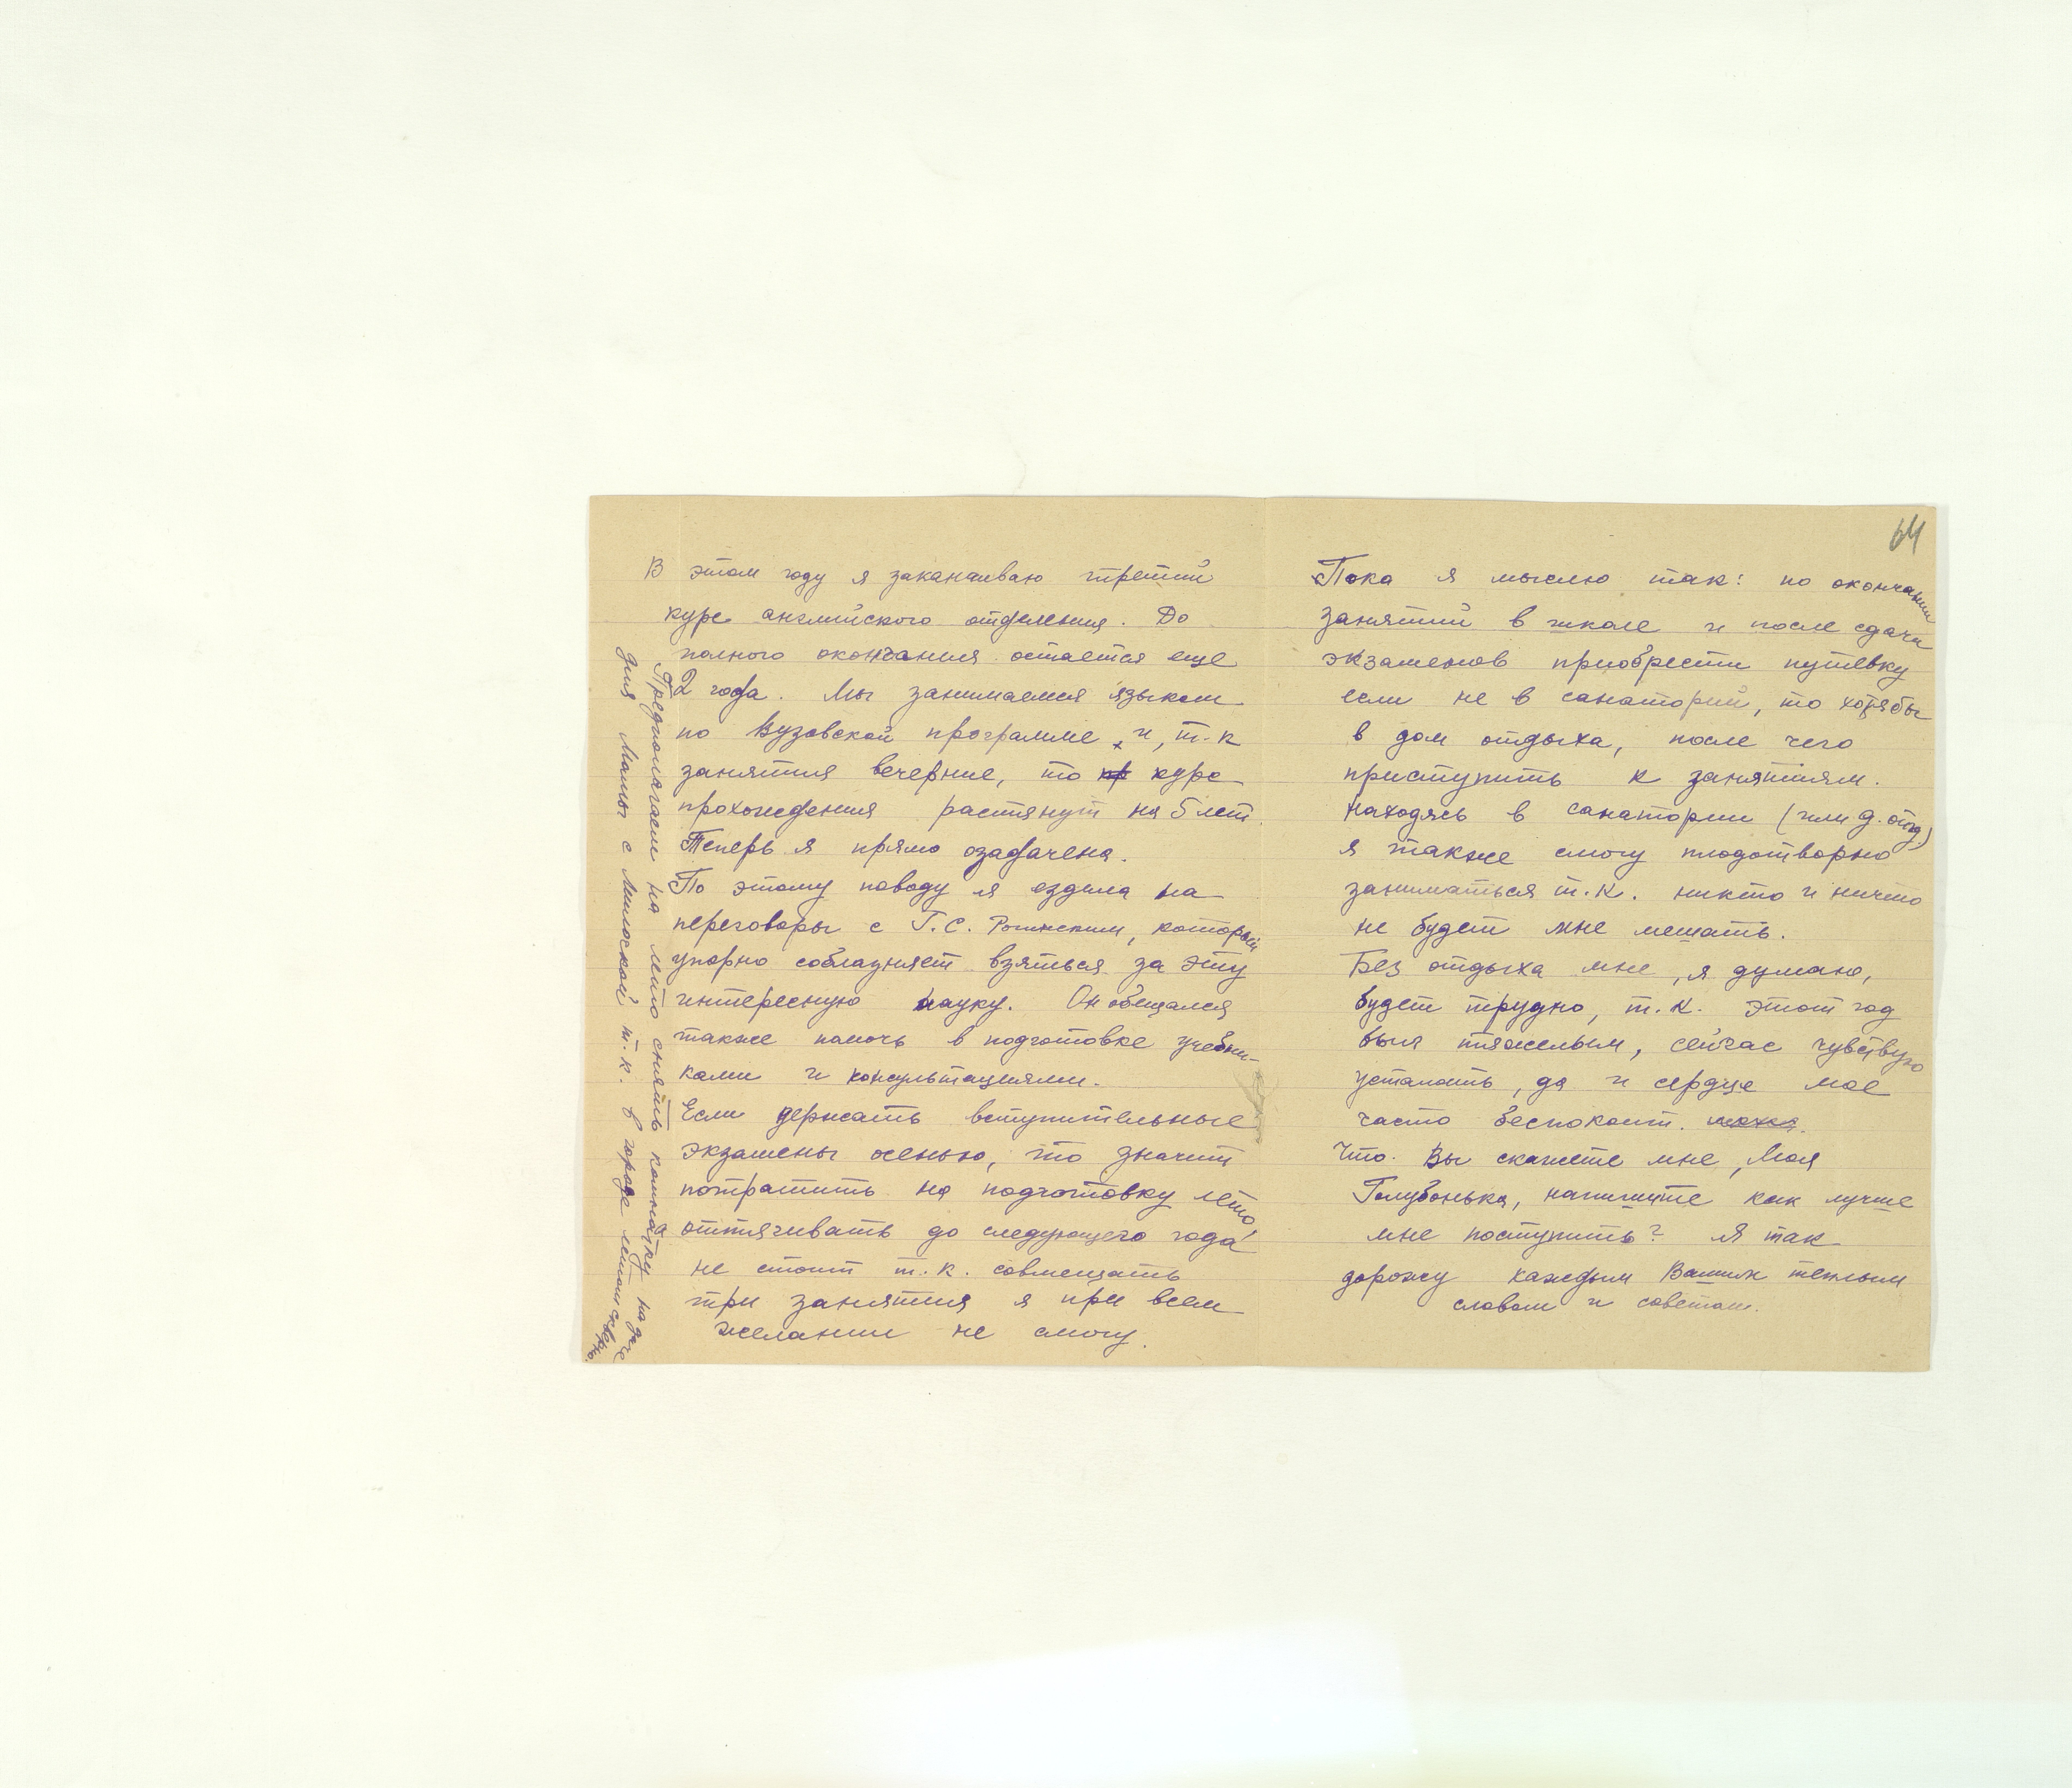 В этом году я заканчиваю третий
курс английского отделения. До
полного окончания остается еще
2 года. Мы занимаемся языком
по Вузовской программе, и, т.к
занятия вечерние, то курс
прохождения растянут на 5 лет.
Теперь я прямо озадачена.
По этому поводу я ездила на
переговоры с Г.С. Рогинским, который
упорно соблазняет взяться за эту
интересную науку. Он обещался
также помочь в подготовке учебни-
ками и консультациями.
Если держать вступительные
экзамены осенью, то значит
потратить на подготовку лето,
оттягивать до следующего года
не стоит т.к. совмещать
три занятия я при всем
желании не смогу.
Предполагаем на лето снять комнатку на даче
для Мамы с Милоской т.к. в городе летом скверно.
64
Пока я мыслю так: по окончании
занятий в школе и после сдачи
экзаменов приобрести путевку
если не в санаторий, то хотя бы
в дом отдыха, после чего
приступить к занятиям.
Находясь в санатории (или д. отд)
я также смогу плодотворно
заниматься т.к. никто и ничто
не будет мне мешать.
Без отдыха мне, я думаю,
будет трудно, т.к. этот год
был тяжелым, сейчас чувствую
усталость, да и сердце мое
часто беспокоит.
Что Вы скажете мне, Моя
Голубонька, напишите как лучше
мне поступить? Я так
дорожу каждым Вашим теплым
словом и советом.